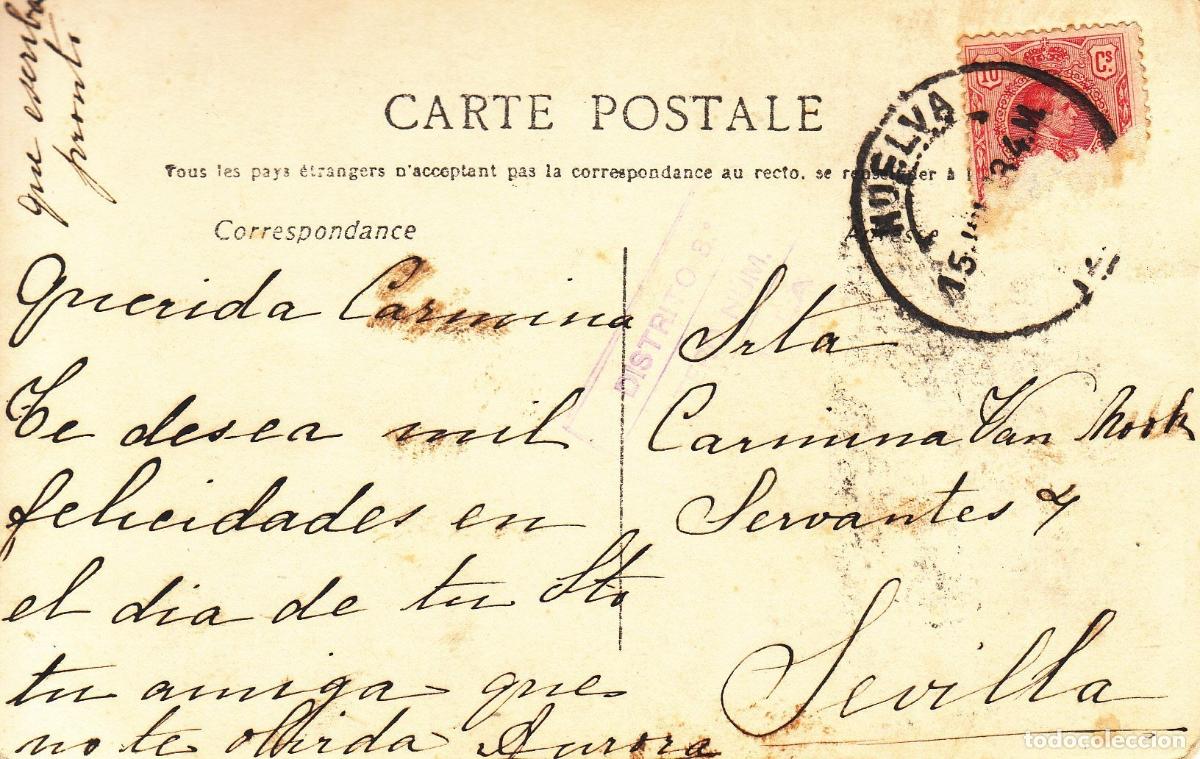 que escriba
pronto
CARTE POSTALE
Tous les pays étrangers n'acceptant pas la correspondance au recto, se renseigner à l
Correspondance
10 Cs.
HUELVA
15
34.M
DISTRITO 8.º
NUM.
Querida Carmina
Te desea mil
felicidades en
el dia de tu Sto
tu amiga que
no te olbida Aurora
Srta
Carmina Van
Servantes 4
Sevilla
todocoleccion